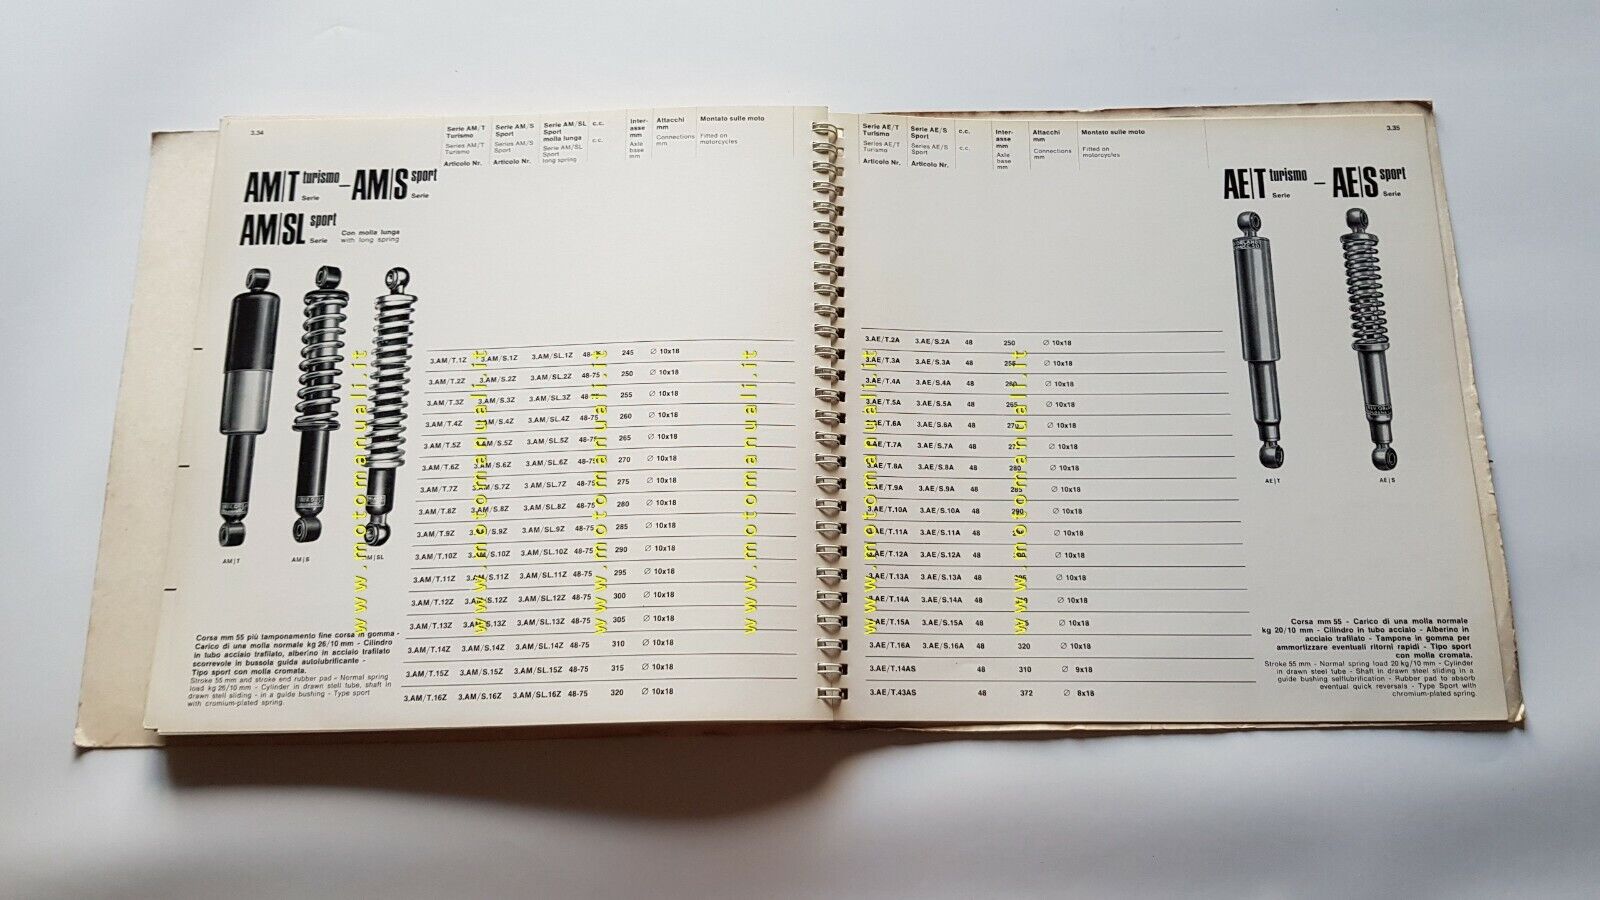 3.34
Serie AM/T Turismo
Series AM/T Turismo
Articolo Nr.
Serie AM/S Sport
Series AM/S Sport
Articolo Nr.
Serie AM/SL Sport molla lunga
Serie AM/SL Sport long spring
c.c.
c.c.
Inter-asse mm
Axle base mm
Attacchi mm
Connections mm
Montato sulle moto
Fitted on motorcycles
AM/T turismo Serie – AM/S sport Serie
AM/SL sport Serie
Con molla lunga
with long spring
3.AM/T.1Z 3.AM/S.1Z 3.AM/SL.1Z 48-75 245 ∅ 10x18
3.AM/T.2Z 3.AM/S.2Z 3.AM/SL.2Z 48-75 250 ∅ 10x18
3.AM/T.3Z 3.AM/S.3Z 3.AM/SL.3Z 48-75 255 ∅ 10x18
3.AM/T.4Z 3.AM/S.4Z 3.AM/SL.4Z 48-75 260 ∅ 10x18
3.AM/T.5Z 3.AM/S.5Z 3.AM/SL.5Z 48-75 265 ∅ 10x18
3.AM/T.6Z 3.AM/S.6Z 3.AM/SL.6Z 48-75 270 ∅ 10x18
3.AM/T.7Z 3.AM/S.7Z 3.AM/SL.7Z 48-75 275 ∅ 10x18
3.AM/T.8Z 3.AM/S.8Z 3.AM/SL.8Z 48-75 280 ∅ 10x18
3.AM/T.9Z 3.AM/S.9Z 3.AM/SL.9Z 48-75 285 ∅ 10x18
3.AM/T.10Z 3.AM/S.10Z 3.AM/SL.10Z 48-75 290 ∅ 10x18
3.AM/T.11Z 3.AM/S.11Z 3.AM/SL.11Z 48-75 295 ∅ 10x18
3.AM/T.12Z 3.AM/S.12Z 3.AM/SL.12Z 48-75 300 ∅ 10x18
3.AM/T.13Z 3.AM/S.13Z 3.AM/SL.13Z 48-75 305 ∅ 10x18
3.AM/T.14Z 3.AM/S.14Z 3.AM/SL.14Z 48-75 310 ∅ 10x18
3.AM/T.15Z 3.AM/S.15Z 3.AM/SL.15Z 48-75 315 ∅ 10x18
3.AM/T.16Z 3.AM/S.16Z 3.AM/SL.16Z 48-75 320 ∅ 10x18
AM|T AM|S AM|SL
Corsa mm 55 più tamponamento fine corsa in gomma -
Carico di una molla normale kg 26/10 mm - Cilindro
in tubo acciaio trafilato, alberino in acciaio trafilato
scorrevole in bussola guida autolubrificante -
Tipo sport con molla cromata.
Stroke 55 mm and stroke end rubber pad - Normal spring
load kg 26/10 mm - Cylinder in drawn steel tube, shaft in
drawn steel sliding - in a guide bushing - Type sport
with cromium-plated spring.
www.motomanuali.it
www.motomanuali.it
www.motomanuali.it
www.motomanuali.it
Serie AE/T Turismo
Series AE/T Turismo
Articolo Nr.
Serie AE/S Sport
Series AE/S Sport
Articolo Nr.
c.c.
c.c.
Inter-asse mm
Axle base mm
Attacchi mm
Connections mm
Montato sulle moto
Fitted on motorcycles
3.35
AE/T turismo Serie – AE/S sport Serie
3.AE/T.2A 3.AE/S.2A 48 250 ∅ 10x18
3.AE/T.3A 3.AE/S.3A 48 255 ∅ 10x18
3.AE/T.4A 3.AE/S.4A 48 260 ∅ 10x18
3.AE/T.5A 3.AE/S.5A 48 265 ∅ 10x18
3.AE/T.6A 3.AE/S.6A 48 270 ∅ 10x18
3.AE/T.7A 3.AE/S.7A 48 275 ∅ 10x18
3.AE/T.8A 3.AE/S.8A 48 280 ∅ 10x18
3.AE/T.9A 3.AE/S.9A 48 285 ∅ 10x18
3.AE/T.10A 3.AE/S.10A 48 290 ∅ 10x18
3.AE/T.11A 3.AE/S.11A 48 ∅ 10x18
3.AE/T.12A 3.AE/S.12A 48 ∅ 10x18
3.AE/T.13A 3.AE/S.13A 48 ∅ 10x18
3.AE/T.14A 3.AE/S.14A 48 ∅ 10x18
3.AE/T.15A 3.AE/S.15A 48 ∅ 10x18
3.AE/T.16A 3.AE/S.16A 48 320 ∅ 10x18
3.AE/T.14AS 48 310 ∅ 9x18
3.AE/T.43AS 48 372 ∅ 8x18
AE|T AE|S
Corsa mm 55 - Carico di una molla normale
kg 20/10 mm - Cilindro in tubo acciaio - Alberino in
acciaio trafilato - Tampone in gomma per
ammortizzare eventuali ritorni rapidi - Tipo sport
con molla cromata.
Stroke 55 mm - Normal spring load 20 kg/10 mm - Cylinder
in drawn steel tube - Shaft in drawn steel sliding in a
guide bushing selflubrification - Rubber pad to absorb
eventual quick reversals - Type Sport with
chromium-plated spring.
www.motomanuali.it
www.motomanuali.it